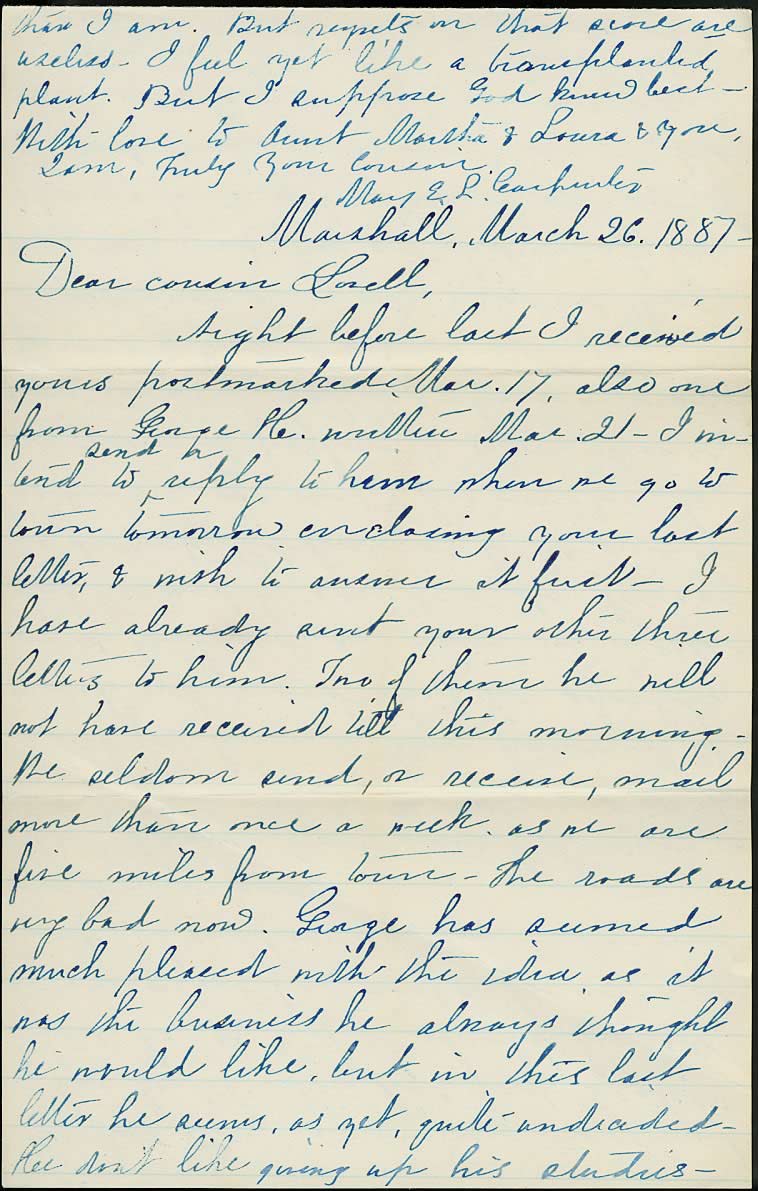 than I am. But regrets on that score are
useless - I feel yet like a transplanted
plant. But I suppose God knew best -
With love to Aunt Martha & Laura & you,
I am, Truly Your Cousin.
Mary E. L. Carpenter
Marshall, March 26. 1887 -
Dear cousin Lovell,
Night before last I received
yours postmarked Mar. 17, also one
from George H. written Mar. 21 - I in-
send a
tend to reply to him when we go to
town tomorrow enclosing your last
letter, & wish to answer it first - I
have already sent your other three
letters to him. Two of them he will
not have received till this morning -
We seldom send, or receive, mail
more than once a week. as we are
five miles from town - The roads are
very bad now. George has seemed
much pleased with the idea as it
was the business he always thought
he would like, but in this last
letter he seems, as yet, quite undecided -
He don't like giving up his studies -